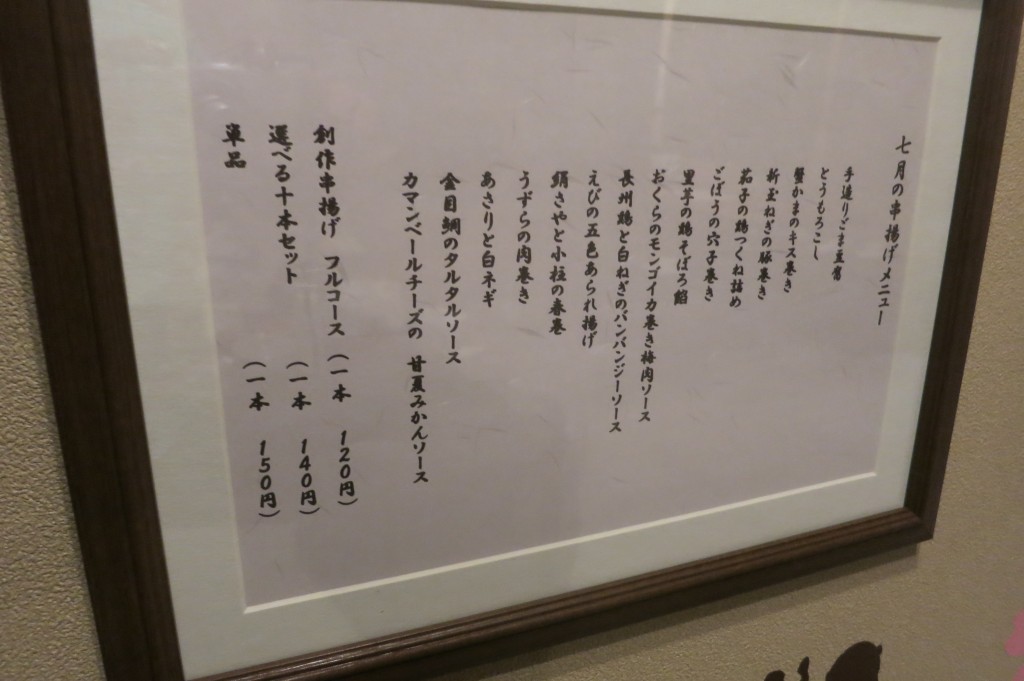 七月の串揚げメニュー
手造りごま豆腐
とうもろこし
蟹かまのキス巻き
新玉ねぎの豚巻き
茄子の鶏つくね詰め
ごぼうの穴子巻き
里芋の鶏そぼろ餡
おくらのモンゴイカ巻き梅肉ソース
長州鶏と白ねぎのバンバンジーソース
えびの五色あられ揚げ
絹さやと小柱の春巻
うずらの肉巻き
あさりと白ネギ
金目鯛のタルタルソース
カマンベールチーズの 甘夏みかんソース
創作串揚げ フルコース (一本 120円)
選べる十本セット (一本 140円)
単品 (一本 150円)